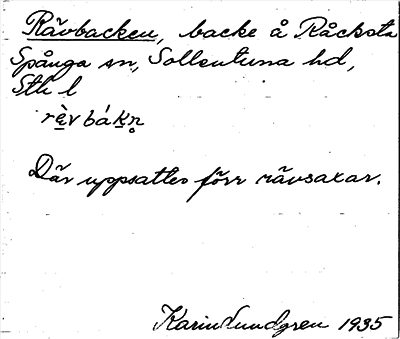 Rävbacken, backe å Råcksta
Spånga sn, Sollentuna hd,
Sth l
rèvbákn̥
Där uppsattes förr rävsaxar.
Karin Lundgren 1935